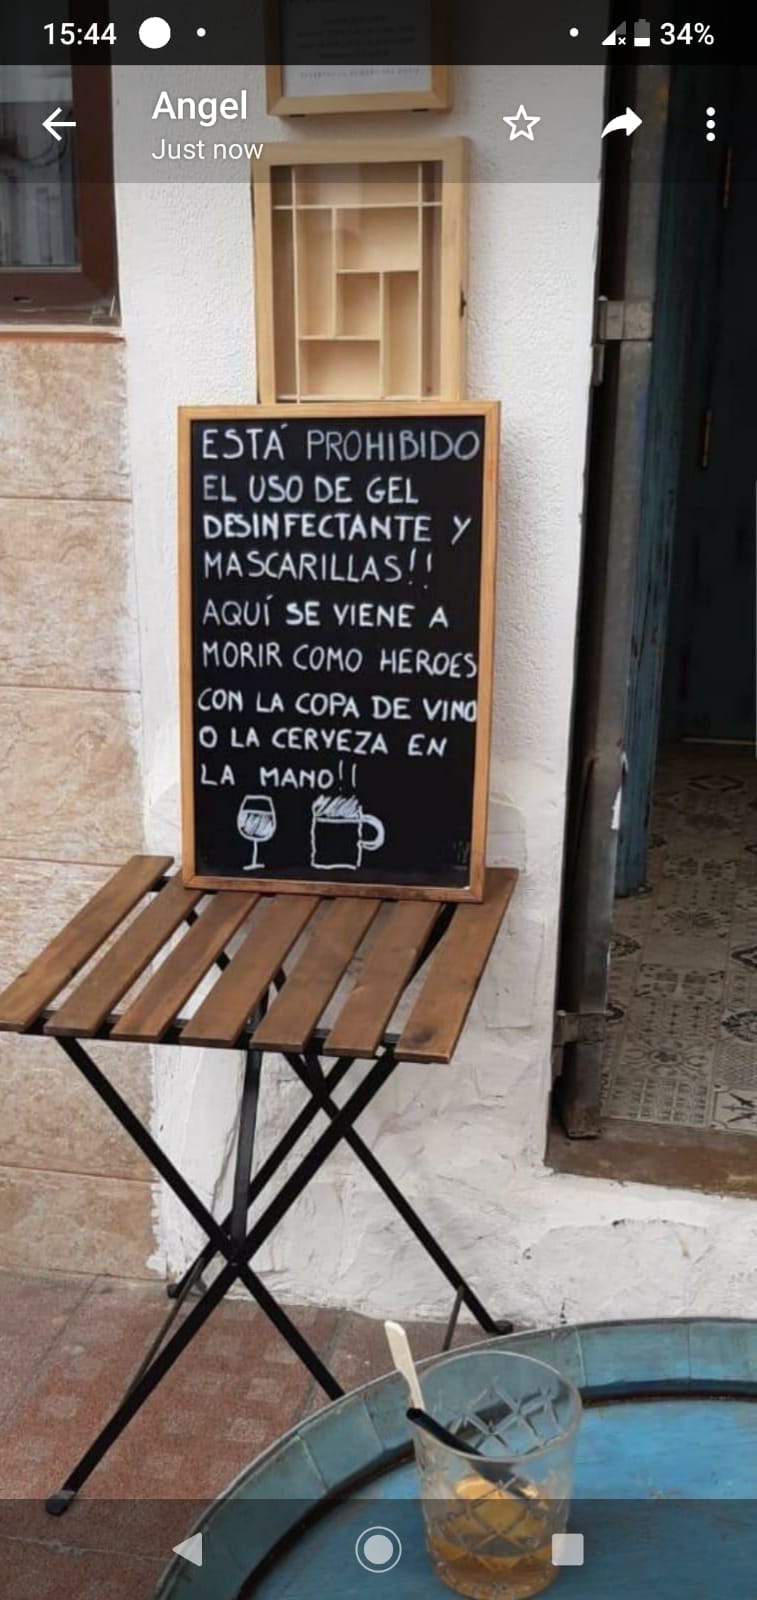 15:44
34%
Angel
Just now
ESTÁ PROHIBIDO
EL USO DE GEL
DESINFECTANTE Y
MASCARILLAS!!
AQUÍ SE VIENE A
MORIR COMO HEROES
CON LA COPA DE VINO
O LA CERVEZA EN
LA MANO!!